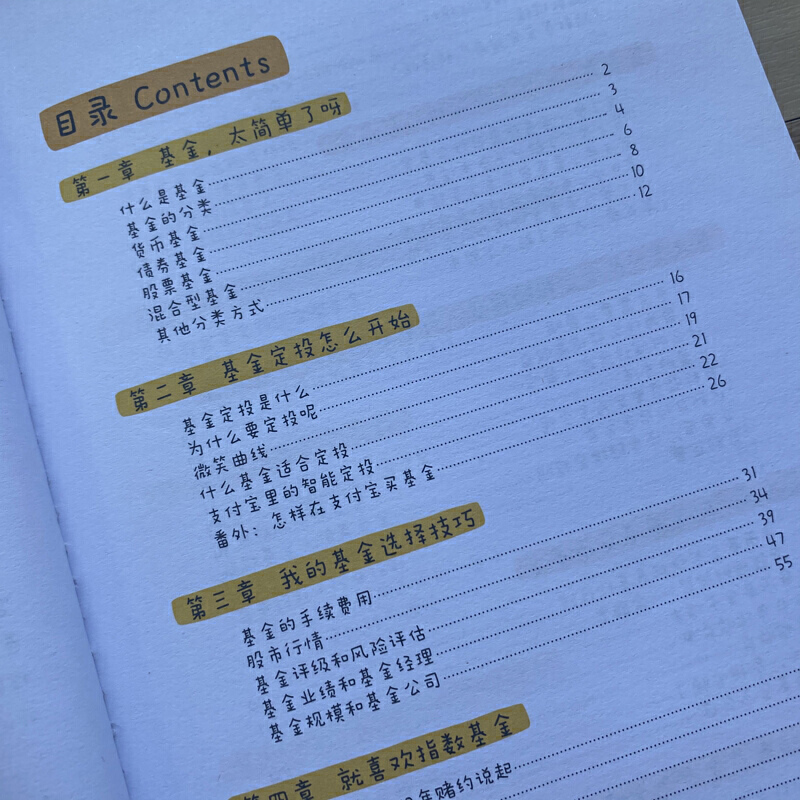 目录 Contents
第一章 基金，太简单了呀
什么是基金 2
基金的分类 3
货币基金 4
债券基金 6
股票基金 8
混合型基金 10
其他分类方式 12
第二章 基金定投怎么开始
基金定投是什么 16
为什么要定投呢 17
微笑曲线 19
什么基金适合定投 21
支付宝里的智能定投 22
番外：怎样在支付宝买基金 26
第三章 我的基金选择技巧
基金的手续费用 31
股市行情 34
基金评级和风险评估 39
基金业绩和基金经理 47
基金规模和基金公司 55
第四章 就喜欢指数基金
年赌约说起